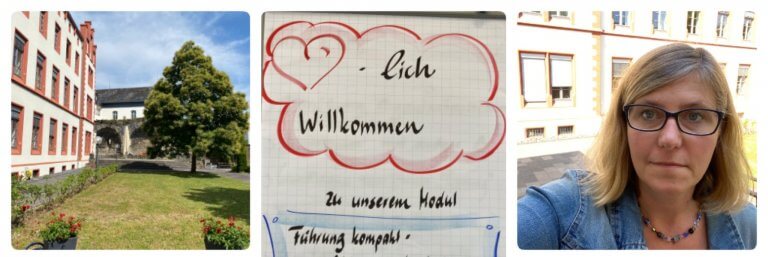 - lich
Willkommen
zu unserem Modul
Führung kompakt -